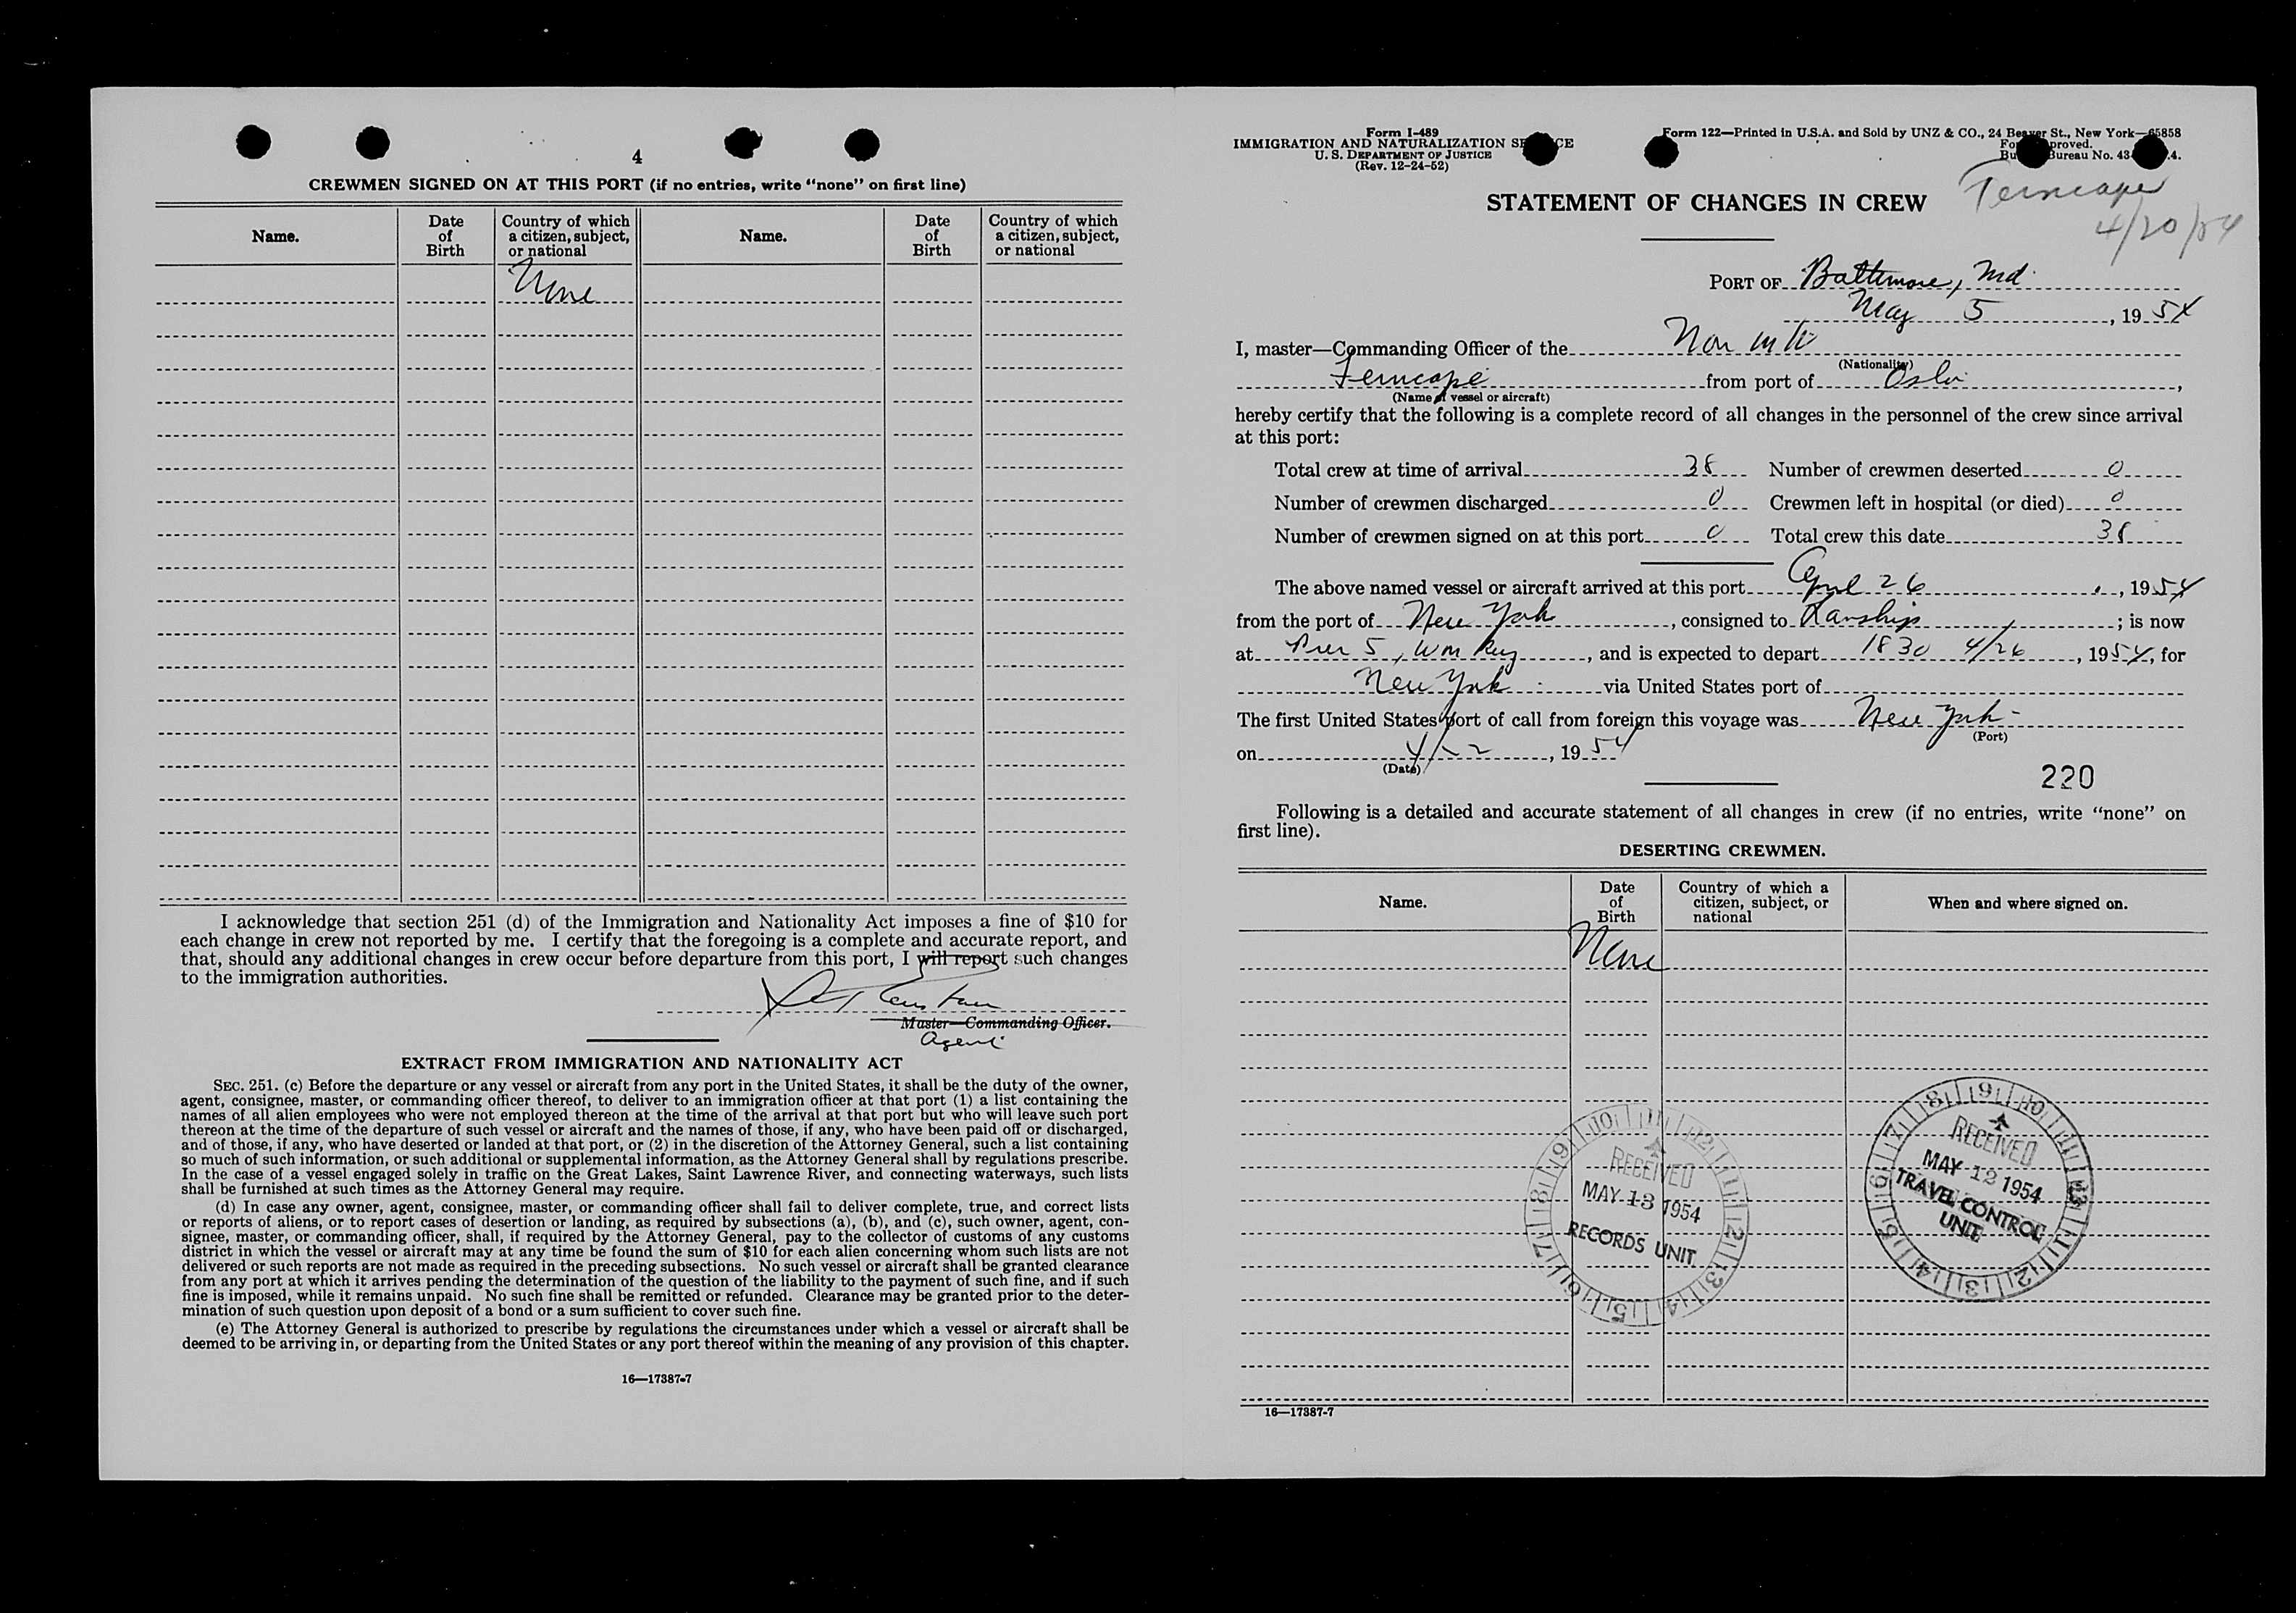 4
CREWMEN SIGNED ON AT THIS PORT (if no entries, write “none” on first line)
Name.
Date of Birth
Country of which a citizen, subject, or national
Name.
Date of Birth
Country of which a citizen, subject, or national
None
I acknowledge that section 251 (d) of the Immigration and Nationality Act imposes a fine of $10 for
each change in crew not reported by me. I certify that the foregoing is a complete and accurate report, and
that, should any additional changes in crew occur before departure from this port, I will report such changes
to the immigration authorities.
Master—Commanding Officer.
Agent
EXTRACT FROM IMMIGRATION AND NATIONALITY ACT
SEC. 251. (c) Before the departure or any vessel or aircraft from any port in the United States, it shall be the duty of the owner,
agent, consignee, master, or commanding officer thereof, to deliver to an immigration officer at that port (1) a list containing the
names of all alien employees who were not employed thereon at the time of the arrival at that port but who will leave such port
thereon at the time of the departure of such vessel or aircraft and the names of those, if any, who have been paid off or discharged,
and of those, if any, who have deserted or landed at that port, or (2) in the discretion of the Attorney General, such a list containing
so much of such information, or such additional or supplemental information, as the Attorney General shall by regulations prescribe.
In the case of a vessel engaged solely in traffic on the Great Lakes, Saint Lawrence River, and connecting waterways, such lists
shall be furnished at such times as the Attorney General may require.
(d) In case any owner, agent, consignee, master, or commanding officer shall fail to deliver complete, true, and correct lists
or reports of aliens, or to report cases of desertion or landing, as required by subsections (a), (b), and (c), such owner, agent, con-
signee, master, or commanding officer, shall, if required by the Attorney General, pay to the collector of customs of any customs
district in which the vessel or aircraft may at any time be found the sum of $10 for each alien concerning whom such lists are not
delivered or such reports are not made as required in the preceding subsections. No such vessel or aircraft shall be granted clearance
from any port at which it arrives pending the determination of the question of the liability to the payment of such fine, and if such
fine is imposed, while it remains unpaid. No such fine shall be remitted or refunded. Clearance may be granted prior to the deter-
mination of such question upon deposit of a bond or a sum sufficient to cover such fine.
(e) The Attorney General is authorized to prescribe by regulations the circumstances under which a vessel or aircraft shall be
deemed to be arriving in, or departing from the United States or any port thereof within the meaning of any provision of this chapter.
16—17387-7
Form I-489
IMMIGRATION AND NATURALIZATION
U. S. DEPARTMENT OF JUSTICE
(Rev. 12-24-52)
Form 122—Printed in U.S.A. and Sold by UNZ & CO., 24 Beaver St., New York—65858
Bureau No.
Ferncape
4/20/54
STATEMENT OF CHANGES IN CREW
PORT OF Baltimore, Md.
May 5, 1954
I, master—Commanding Officer of the
(Nationality)
Ferncape from port of Oslo,
(Name of vessel or aircraft)
hereby certify that the following is a complete record of all changes in the personnel of the crew since arrival
at this port:
Total crew at time of arrival 38 Number of crewmen deserted 0
Number of crewmen discharged 0 Crewmen left in hospital (or died) 0
Number of crewmen signed on at this port 0 Total crew this date 38
The above named vessel or aircraft arrived at this port April 26, 1954
from the port of New York, consigned to Ramship; is now
at Pier 5, , and is expected to depart 1830 4/26, 1954, for
New York via United States port of
The first United States port of call from foreign this voyage was New York
(Port)
on , 1954
(Date)
220
Following is a detailed and accurate statement of all changes in crew (if no entries, write “none” on
first line).
DESERTING CREWMEN.
Name.
Date of Birth
Country of which a citizen, subject, or national
When and where signed on.
None
RECEIVED
MAY 13 1954
RECORDS UNIT
RECEIVED
MAY 12 1954
TRAVEL CONTROL
UNIT
16—17387-7